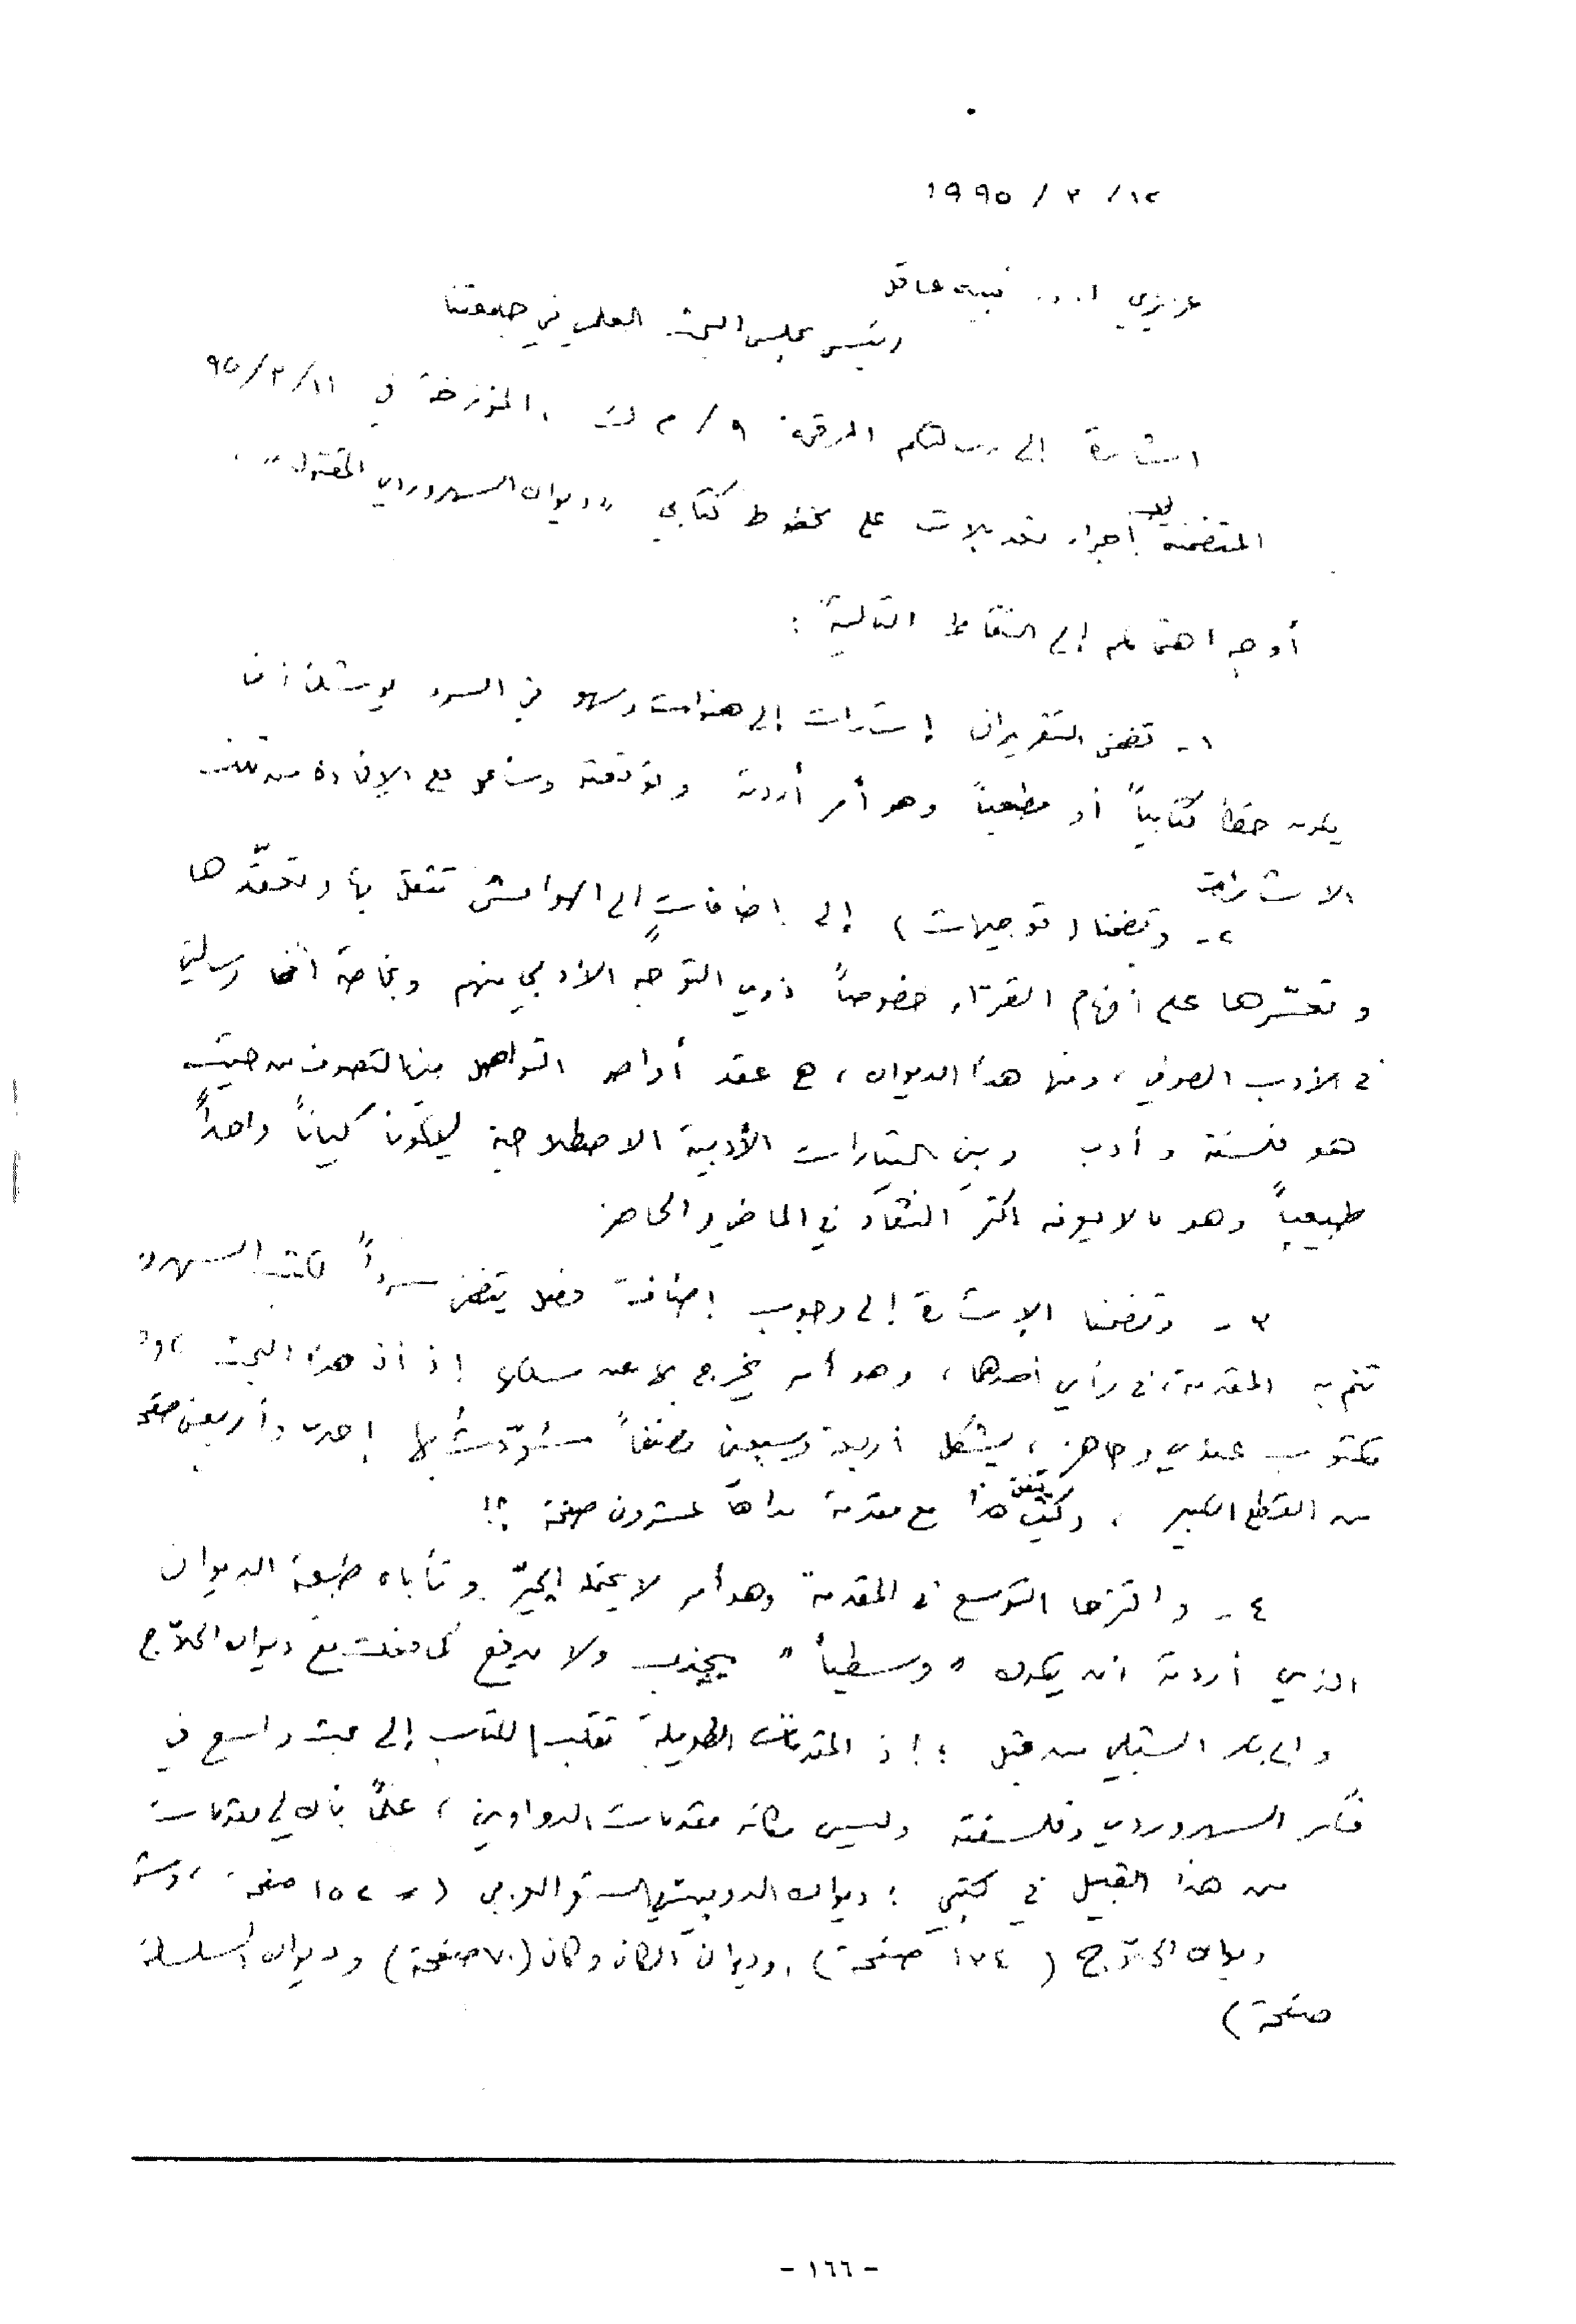 ١٢/ ٣ / ١٩٩٥
عزيزي ا. د. نبيه عاقل
رئيس مجلس البحث العلمي في جامعتنا
اشارة إلى رسالتكم المرقمة ٩/ م ث ، المؤرخة في ١١/٣/٩٥
المتضمنة اجراء تعديلات على مخطوط كتابي "ديوان السهروردي المقتول" .
أوجه اهتمامكم إلى النقاط التالية :
١ - تضمن التقريران إشارات إلى هنوات وسهو في السرد
يكون خطأ كتابياً أو مطبعياً وهو أمر أردته وتوقعته وسأعمل على الإفادة من تلك
الاشارات
٢ - وتضمنا (توجيهات) إلى إضافات إلى الهوامش تثقل بها وتعقّدها
وتعسّرها على أفهام القرّاء خصوصاً ذوي التوجّه الأدبي منهم وبخاصة أن رسالتي
في الأدب الصوفي ، ومنها هذا الديوان ، هي عقد أواصر التواصل بين التصوف من حيث
هو فلسفة وأدب وبين التيارات الأدبية الاصطلاحية ليكونا كياناً واحداً
طبيعياً وهو ما لا يعرفه اكثر النقّاد في الماضي والحاضر
٣ - وتضمنا الإشارة إلى وجوب إضافة فصل يتضمن سرداً لكتب السهرو"
تتم به المقدمة، في رأي أحدهما ، وهو أمر يخرج بها عن إذ أن هذا البحث ،
مكتوب عندي وجاهز ، يشكل أربعة وسبعين مصنفاً إحدى وأربعين صفحة
من القطع الكبير ، وكيف يتفق هذا مع مقدمة مداها عشرون صفحة ؟!
٤ - واقترحا التوسع في المقدمة وهو أمر لا يحتمله الحيّز وتأباه طبيعة الديوان
الذي أردته ان يكون "وسطياً" يجذب ولا يدفع كما فعلت مع ديوان الحلّاج
وابي بكر الشبلي من قبل ؛ إذ المقدمات الطويلة تقلب الكتاب إلى بحث واسع في
فكر السهروردي وفلسفته وليس مكانه مقدمات الدواوين ، علماً بأن لي مقدمات
من هذا القبيل في كتبي : ديوان الدوبيت في الشعر العربي ( ١٥٢ صفحة ،
ديوان الحلّاج ( ١٧٤ صفحة) ، وديوان الكان وكان (٧٠ صفحة) وديوان السلسلة
صفحة )
- ١٦٦ -